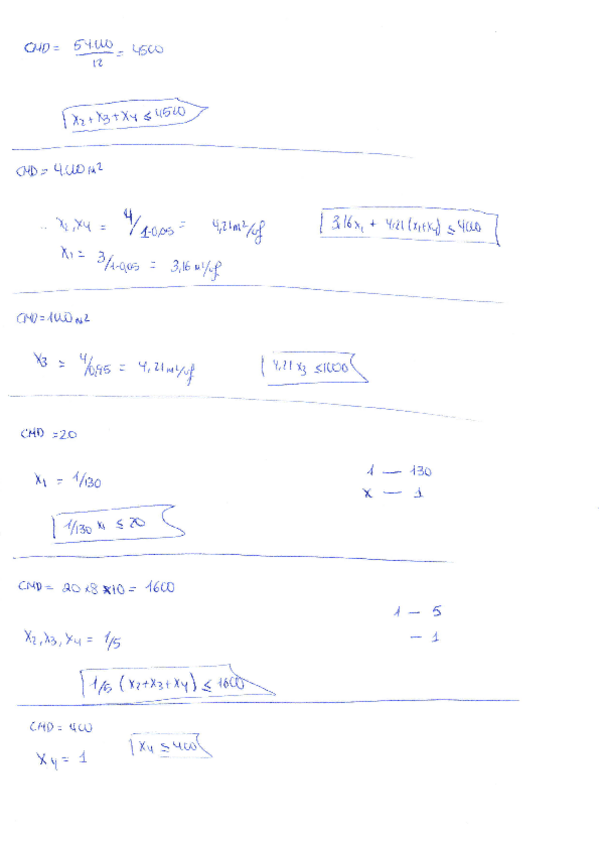 CMD = 54000/12 = 4500
x2 + x3 + x4 ≤ 4500
CMD = 4000 m²
x2, x4 = 4/1-0,05 = 4,21 m²/uf
3,16x1 + 4,21(x1+x4) ≤ 4000
x1 = 3/1-0,05 = 3,16 m²/uf
CMD = 1000 m²
x3 = 4/0,95 = 4,21 m²/uf
4,21 x3 ≤ 1000
CMD = 20
1 — 130
x1 = 1/130
x — 1
1/130 x1 ≤ 20
CMD = 20 x 8 x 10 = 1600
1 — 5
x2, x3, x4 = 1/5
— 1
1/5 (x2 + x3 + x4) ≤ 1600
CMD = 400
x4 = 1
x4 ≤ 400